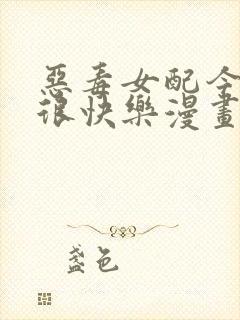 惡毒女配今
很快樂漫畫
盞色